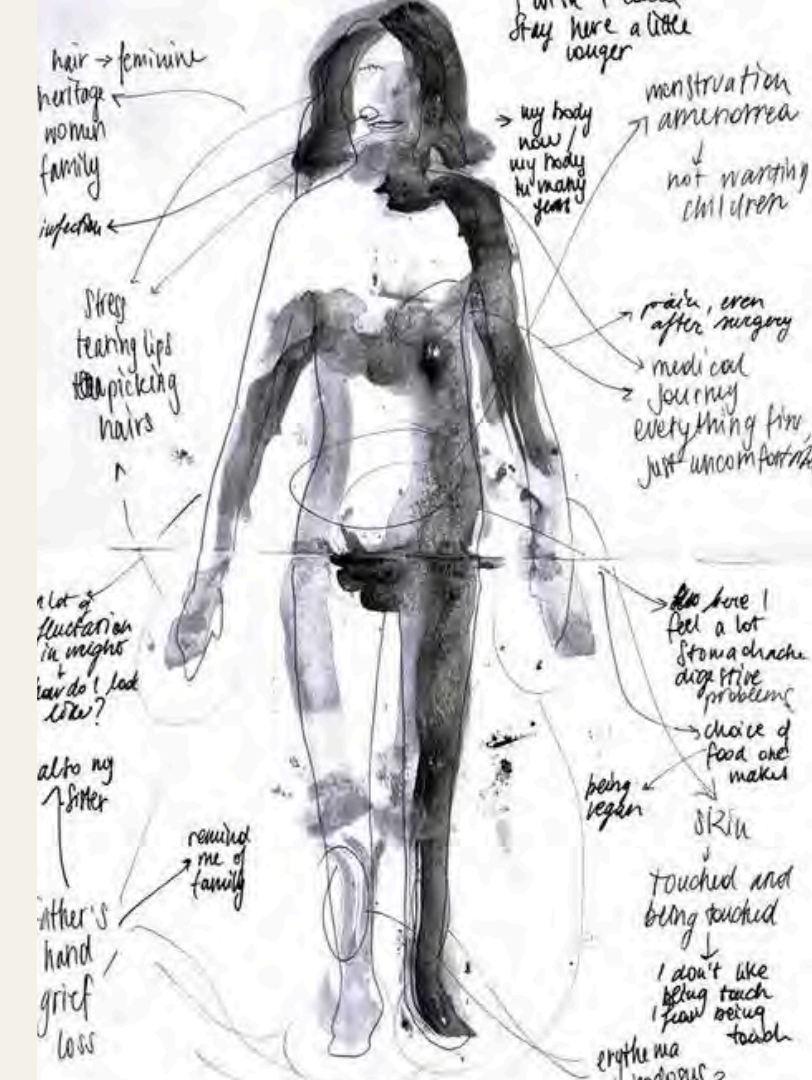 Stay here a little
longer
hair → feminine
heritage
women
family
infection
stress
tearing lips
picking
hairs
→ my body
now /
my body
in many
years
menstruation
amenorrea
↓
not wanting
children
pain, even
after surgery
medical
journey
everything fine,
just uncomfortable
a lot of
fluctation
in weight
↓
how do I look
like?
also my
sister
remind
me of
family
father's
hand
grief
loss
here I
feel a lot
stomachache
digestive
problems
choice of
food one
makes
being
vegan
skin
↓
touched and
being touched
↓
I don't like
being touch
I fear being
touch
erythema